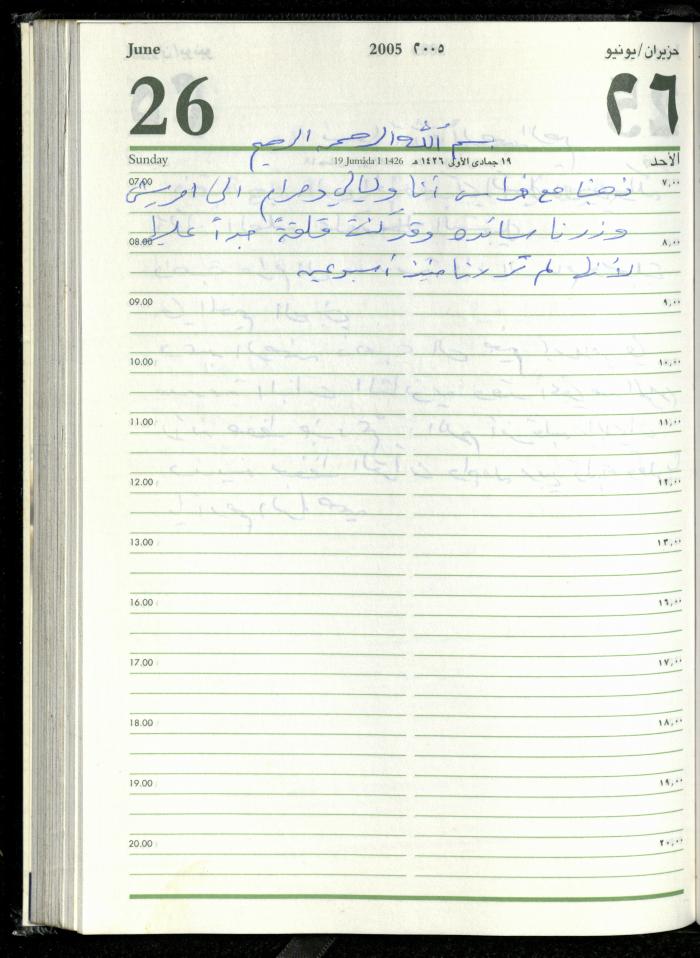 June 2005 ٢٠٠٥ حزيران/يونيو
26 ٢٦
بسم الله الرحمن الرحيم
Sunday 19 Jumada I 1426 ١٩ جمادى الأولى ١٤٢٦ هـ الأحد
ذهبنا مع فراس أنا وليالي ومرام الى
وزرنا سائده وقد كنت قلقة جداً عليها
لأنها لم تزرنا منذ أسبوعين
07.00 ٧,٠٠
08.00 ٨,٠٠
09.00 ٩,٠٠
10.00 ١٠,٠٠
11.00 ١١,٠٠
12.00 ١٢,٠٠
13.00 ١٣,٠٠
16.00 ١٦,٠٠
17.00 ١٧,٠٠
18.00 ١٨,٠٠
19.00 ١٩,٠٠
20.00 ٢٠,٠٠